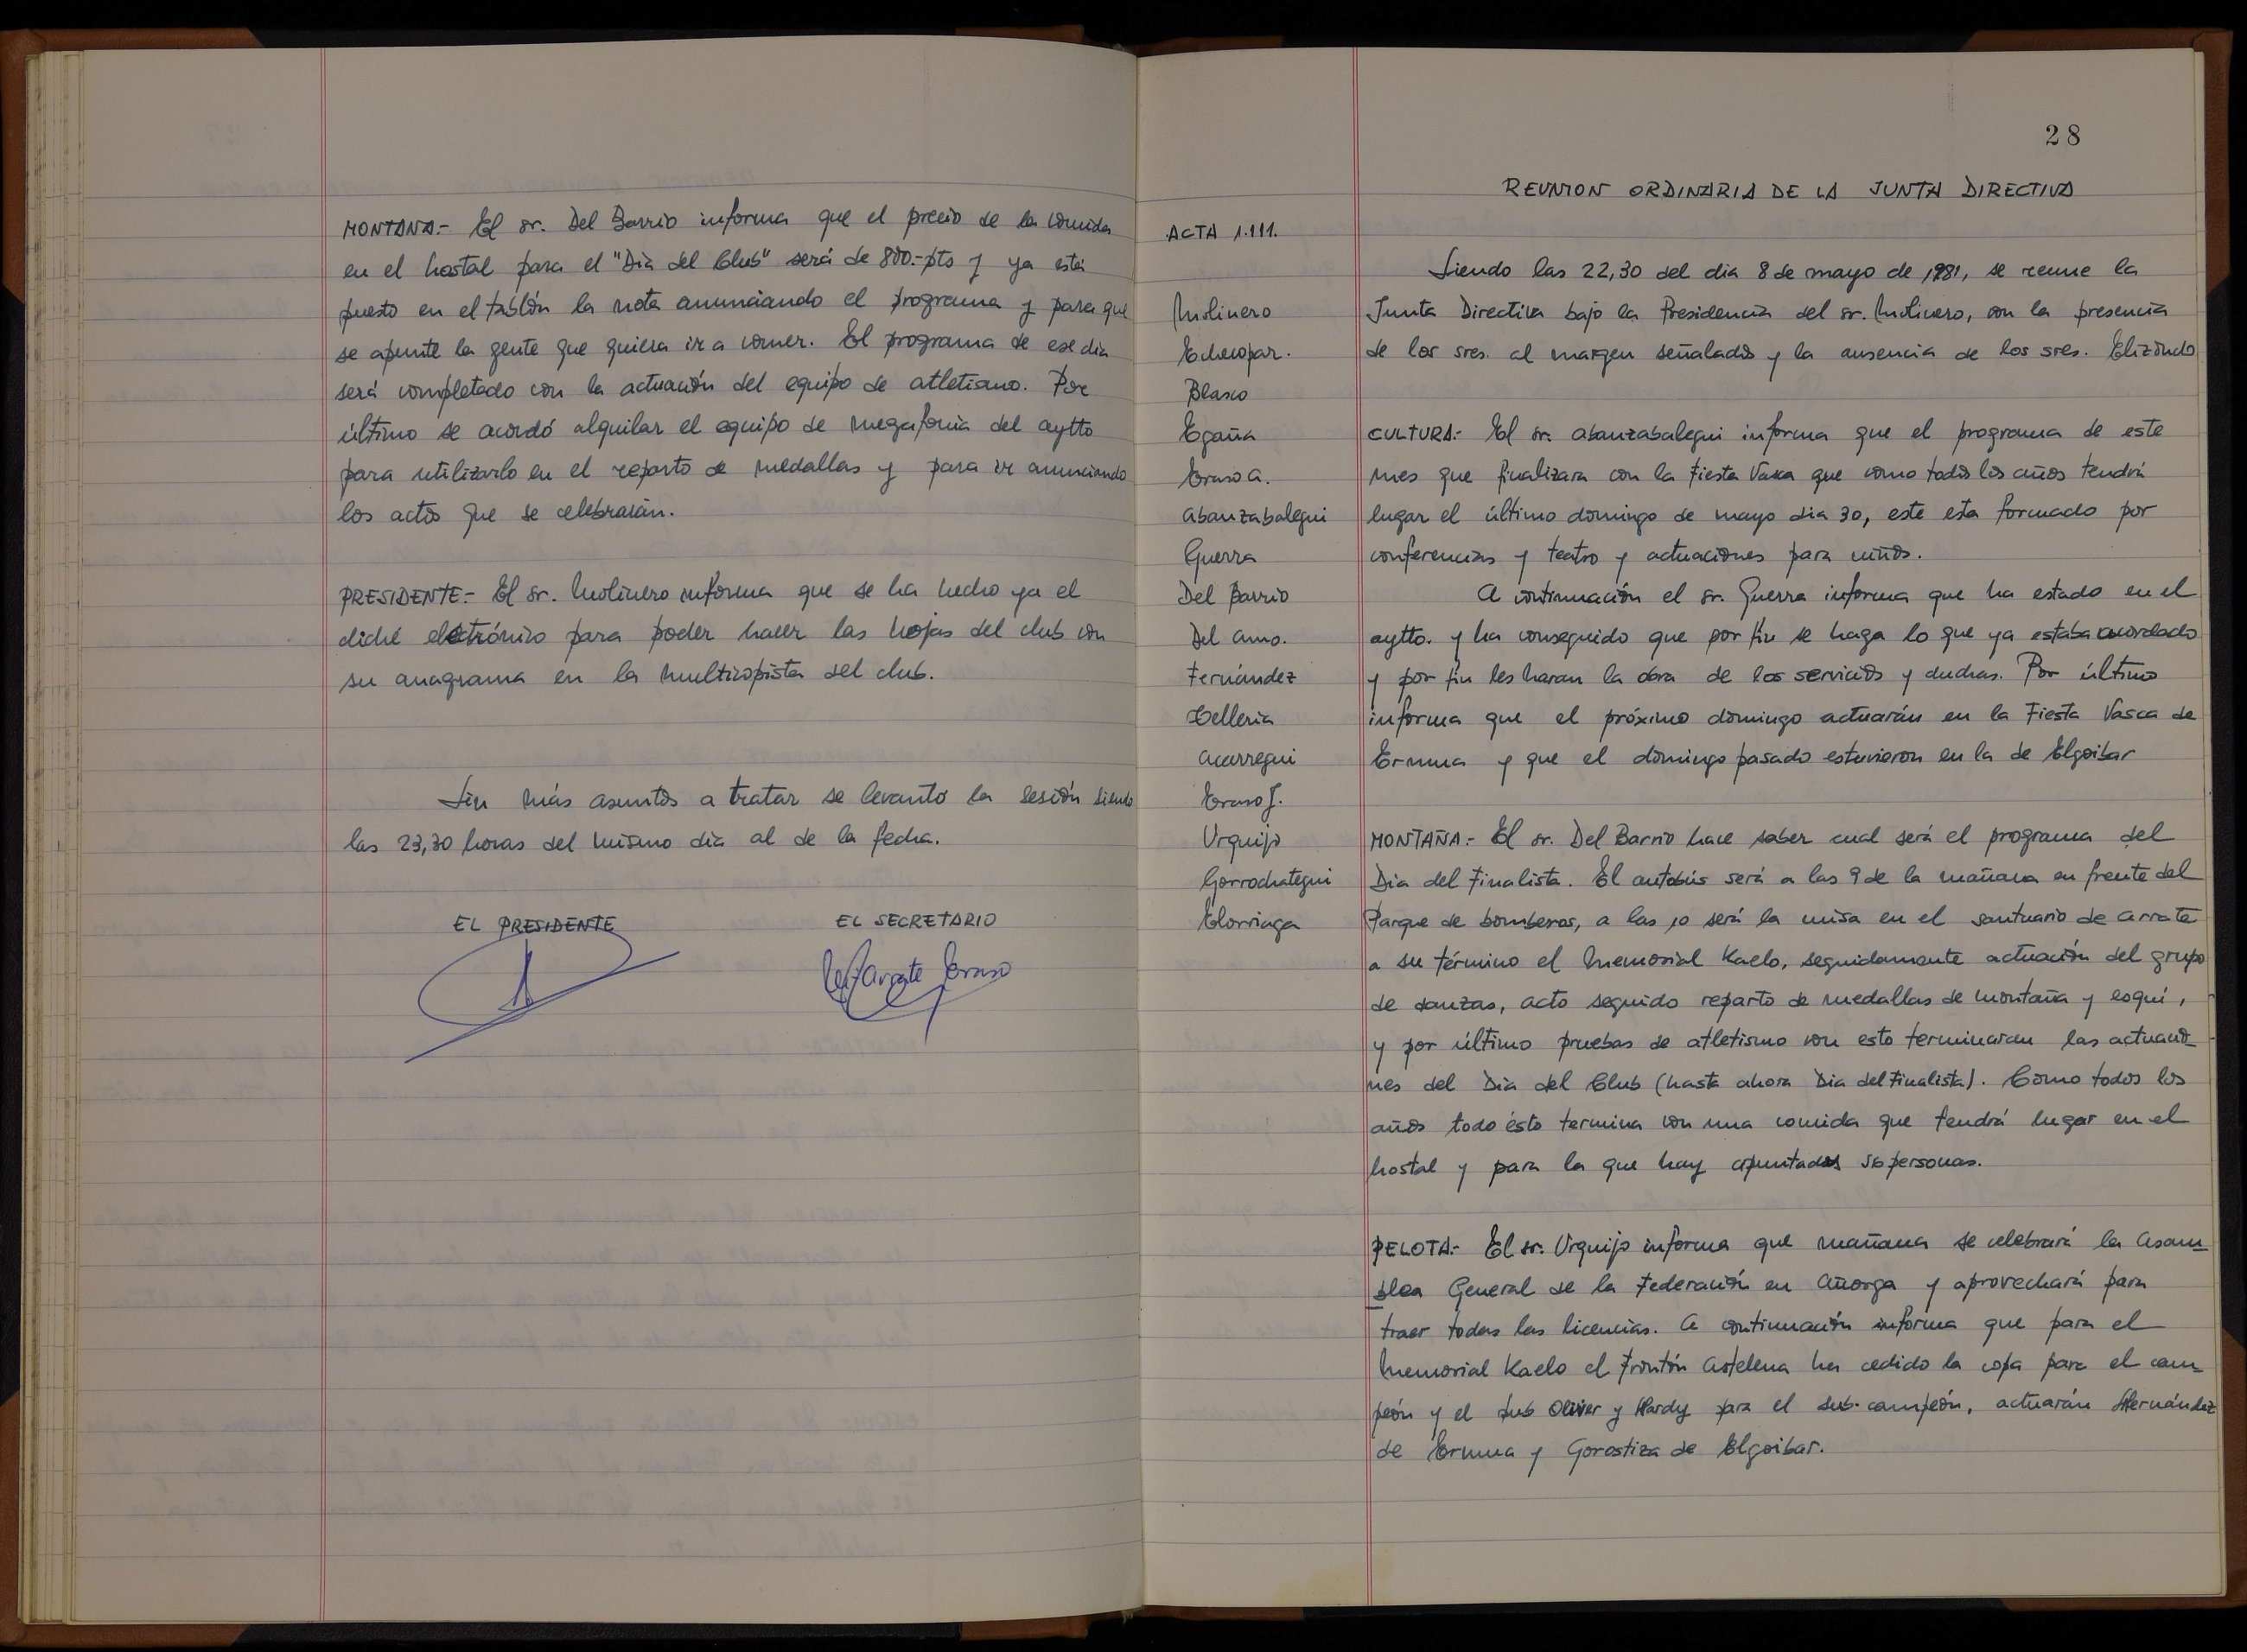 MONTANA.- El sr. Del Barrio informa que el precio de la comida
en el hostal para el "Dia del Club" será de 800.-pts y ya está
puesto en el tablón la nota anunciando el programa y para que
se apunte la gente que quiera ir a comer. El programa de ese dia
será completado con la actuación del equipo de atletismo. Por
último se acordó alquilar el equipo de megafonia del aytto
para utilizarlo en el reparto de medallas y para ir anunciando
los actos que se celebrarán.
PRESIDENTE.- El sr. Molinero informa que se ha hecho ya el
cliché electrónico para poder hacer las hojas del club con
su anagrama en la multicopista del club.
Sin más asuntos a tratar se levantó la sesión siendo
las 23,30 horas del mismo dia al de la fecha.
EL PRESIDENTE
EL SECRETARIO
Arrate Eraso
28
REUNION ORDINARIA DE LA JUNTA DIRECTIVA
ACTA 1.111.
Molinero
Echeopar.
Blasco
Egaña
Eraso A.
Abanzabalegui
Guerra
Del Barrio
Del Amo.
Fernández
Telleria
Acarregui
Eraso J.
Urquijo
Gorrochategui
Elorriaga
Siendo las 22,30 del dia 8 de mayo de 1981, se reune la
Junta Directiva bajo la Presidencia del sr. Molinero, con la presencia
de los sres. al margen señalados y la ausencia de los sres. Elizondo
CULTURA.- El sr. Abanzabalegui informa que el programa de este
mes que finalizara con la Fiesta Vasca que como todos los años tendrá
lugar el último domingo de mayo dia 30, este esta formado por
conferencias y teatro y actuaciones para niños.
A continuación el sr. Guerra informa que ha estado en el
aytto. y ha conseguido que por fin se haga lo que ya estaba acordado
y por fin les haran la obra de los servicios y duchas. Por último
informa que el próximo domingo actuarán en la Fiesta Vasca de
Ermua y que el domingo pasado estuvieron en la de Elgoibar
MONTAÑA.- El sr. Del Barrio hace saber cual será el programa del
Dia del Finalista. El autobús será a las 9 de la mañana en frente del
Parque de bomberos, a las 10 será la misa en el santuario de Arrate
a su término el Memorial Kaelo, seguidamente actuación del grupo
de danzas, acto seguido reparto de medallas de montaña y esqui,
y por último pruebas de atletismo con esto terminaran las actuacio-
nes del Dia del Club (hasta ahora Dia del Finalista). Como todos los
años todo ésto termina con una comida que tendrá lugar en el
hostal y para la que hay apuntados 56 personas.
PELOTA.- El sr. Urquijo informa que mañana se celebrará la Asam-
blea General de la Federación en Añorga y aprovechará para
traer todas las licencias. A continuación informa que para el
Memorial Kaelo el Frontón Astelena ha cedido la copa para el cam-
peón y el pub Oliver y Hardy para el sub-campeón, actuarán Hernández
de Ermua y Gorostiza de Elgoibar.